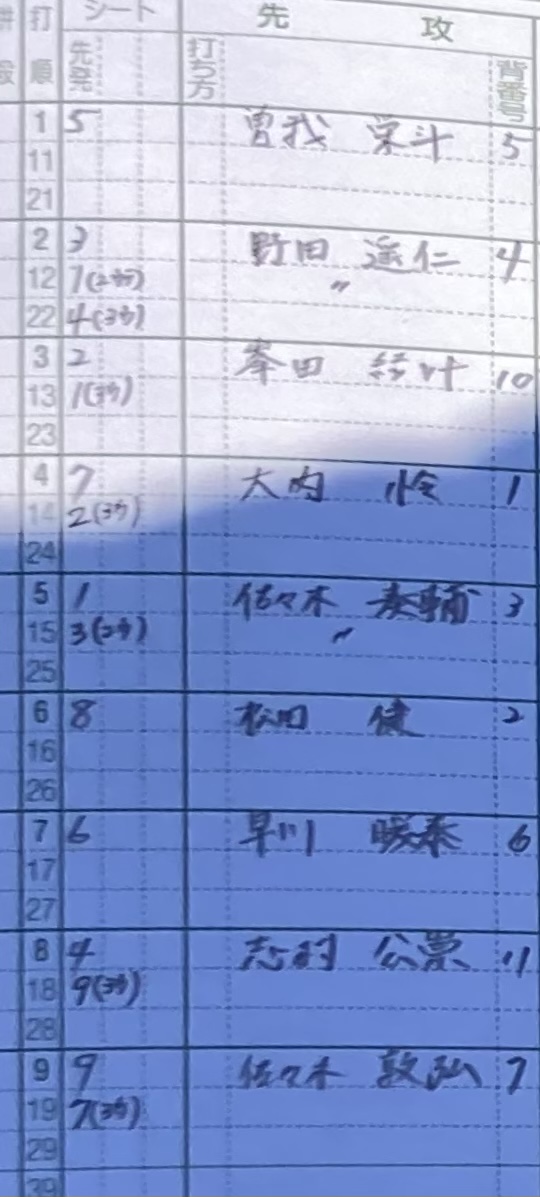 打 シート 先 攻
順 先発 打ち方 背番号
1 5 曽我 栄斗 5
11
21
2 3 野田 遥仁 4
12 1(2裏) 〃
22 4(3裏)
3 2 峯田 絃叶 10
13 1(3裏)
23
4 7 大内 怜 1
14 2(3裏)
24
5 1 佐々木 奏輔 3
15 3(2裏) 〃
25
6 8 松田 健 2
16
26
7 6 早川 暖泰 6
17
27
8 4 志村 公 11
18 9(3裏)
28
9 9 佐々木 敦弘 7
19 7(3裏)
29
39